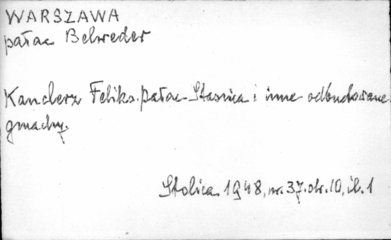 WARSZAWA
pałac Belweder
Kanclerz Feliks. pałac Staszica i inne odbudowane
gmachy.
Stolica 1948, nr. 37. str. 10, il. 1